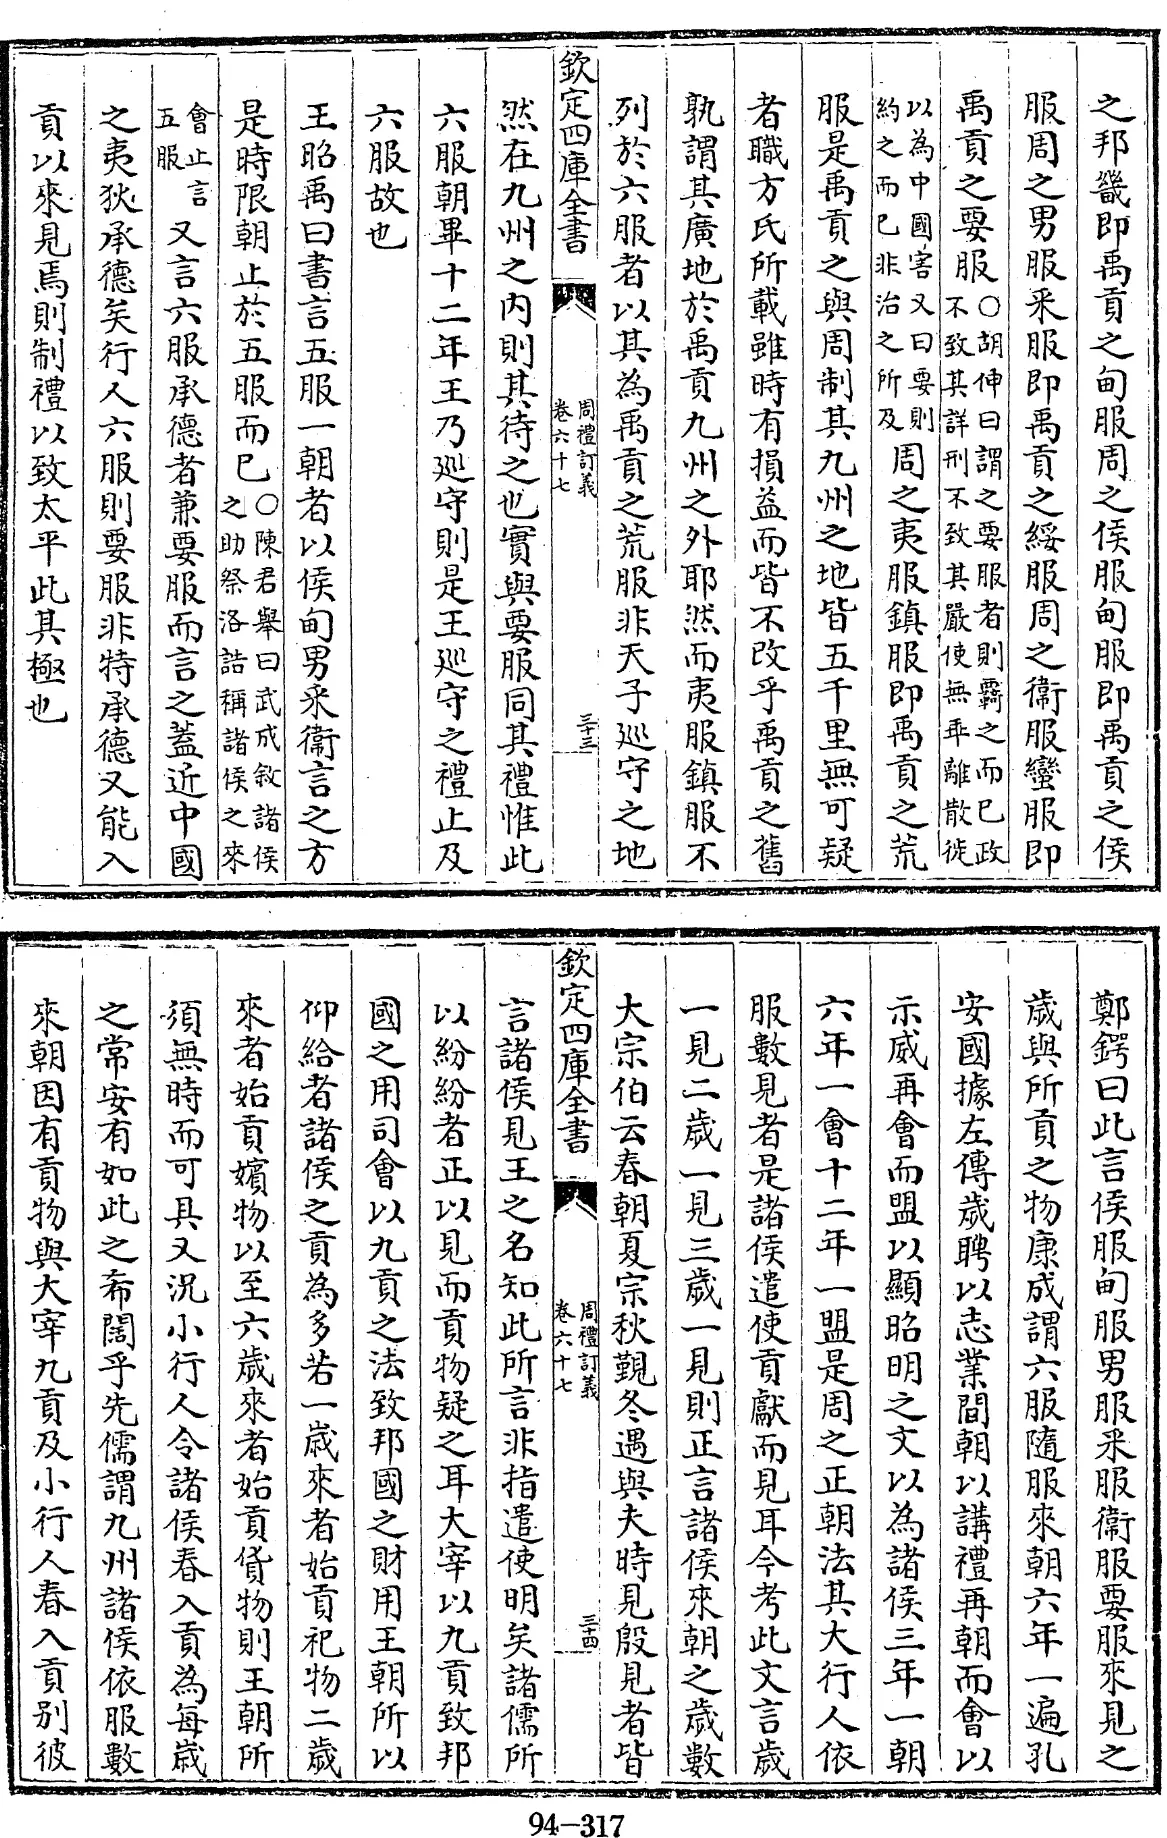 之邦畿即禹貢之甸服周之侯服甸服即禹貢之侯
服周之男服采服即禹貢之綏服周之衛服蠻服即
禹貢之要服○胡伸曰謂之要服者則覊之而已政
不致其詳刑不致其嚴使無乖離散徙
以為中國害又曰要則
約之而已非治之所及周之夷服鎮服即禹貢之荒
服是禹貢之與周制其九州之地皆五千里無可疑
者職方氏所載雖時有損益而皆不改乎禹貢之舊
孰謂其廣地於禹貢九州之外耶然而夷服鎮服不
列於六服者以其為禹貢之荒服非天子巡守之地
欽定四庫全書
周禮訂義
卷六十七
三十三
然在九州之内則其待之也實與要服同其禮惟此
六服朝畢十二年王乃巡守則是王巡守之禮止及
六服故也
王昭禹曰書言五服一朝者以侯甸男采衛言之方
是時限朝止於五服而已○陳君舉曰武成敘諸侯
之助祭洛誥稱諸侯之來
會止言
五服又言六服承德者兼要服而言之蓋近中國
之夷狄承德矣行人六服則要服非特承德又能入
貢以來見焉則制禮以致太平此其極也
鄭鍔曰此言侯服甸服男服采服衛服要服來見之
歲與所貢之物康成謂六服隨服來朝六年一遍孔
安國據左傳歲聘以志業間朝以講禮再朝而會以
示威再會而盟以顯昭明之文以為諸侯三年一朝
六年一會十二年一盟是周之正朝法其大行人依
服數見者是諸侯遣使貢獻而見耳今考此文言歲
一見二歲一見三歲一見則正言諸侯來朝之歲數
大宗伯云春朝夏宗秋覲冬遇與夫時見殷見者皆
欽定四庫全書
周禮訂義
卷六十七
三十四
言諸侯見王之名知此所言非指遣使明矣諸儒所
以紛紛者正以見而貢物疑之耳大宰以九貢致邦
國之用司會以九貢之法致邦國之財用王朝所以
仰給者諸侯之貢為多若一歲來者始貢祀物二歲
來者始貢嬪物以至六歲來者始貢貨物則王朝所
須無時而可具又況小行人令諸侯春入貢為每歲
之常安有如此之希闊乎先儒謂九州諸侯依服數
來朝因有貢物與大宰九貢及小行人春入貢别彼
94-317